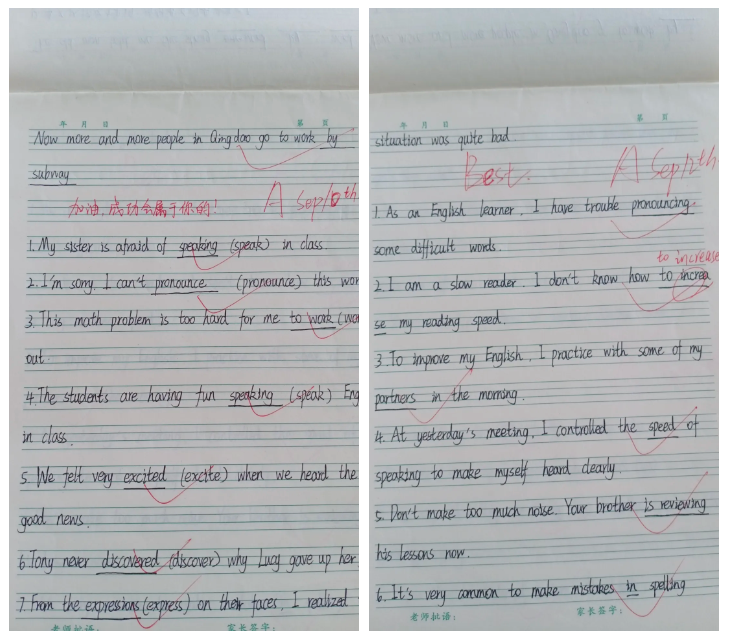 年 月 日 第 页
Now more and more people in Qingdao go to work by
subway
加油,成功会属于你的! A Sep10th
1. My sister is afraid of speaking (speak) in class.
2. I'm sorry, I can't pronounce (pronounce) this wor
3. This math problem is too hard for me to work (wo
out.
4. The students are having fun speaking (speak) Eng
in class.
5. We felt very excited (excite) when we heard the
good news.
6. Tony never discovered (discover) why Lucy gave up her
7. From the expressions (express) on their faces, I realized
老师批语: 家长签字:
年 月 日 第 页
situation was quite bad
Best. A Sep12th
1. As an English learner, I have trouble pronouncing
some difficult words.
to increase
2. I am a slow reader. I don't know how to increa
se my reading speed.
3. To improve my English, I practice with some of my
partners in the morning.
4. At yesterday's meeting, I controlled the speed of
speaking to make myself heard clearly.
5. Don't make too much noise. Your brother is reviewing
his lessons now.
6. It's very common to make mistakes in spelling
老师批语: 家长签字: